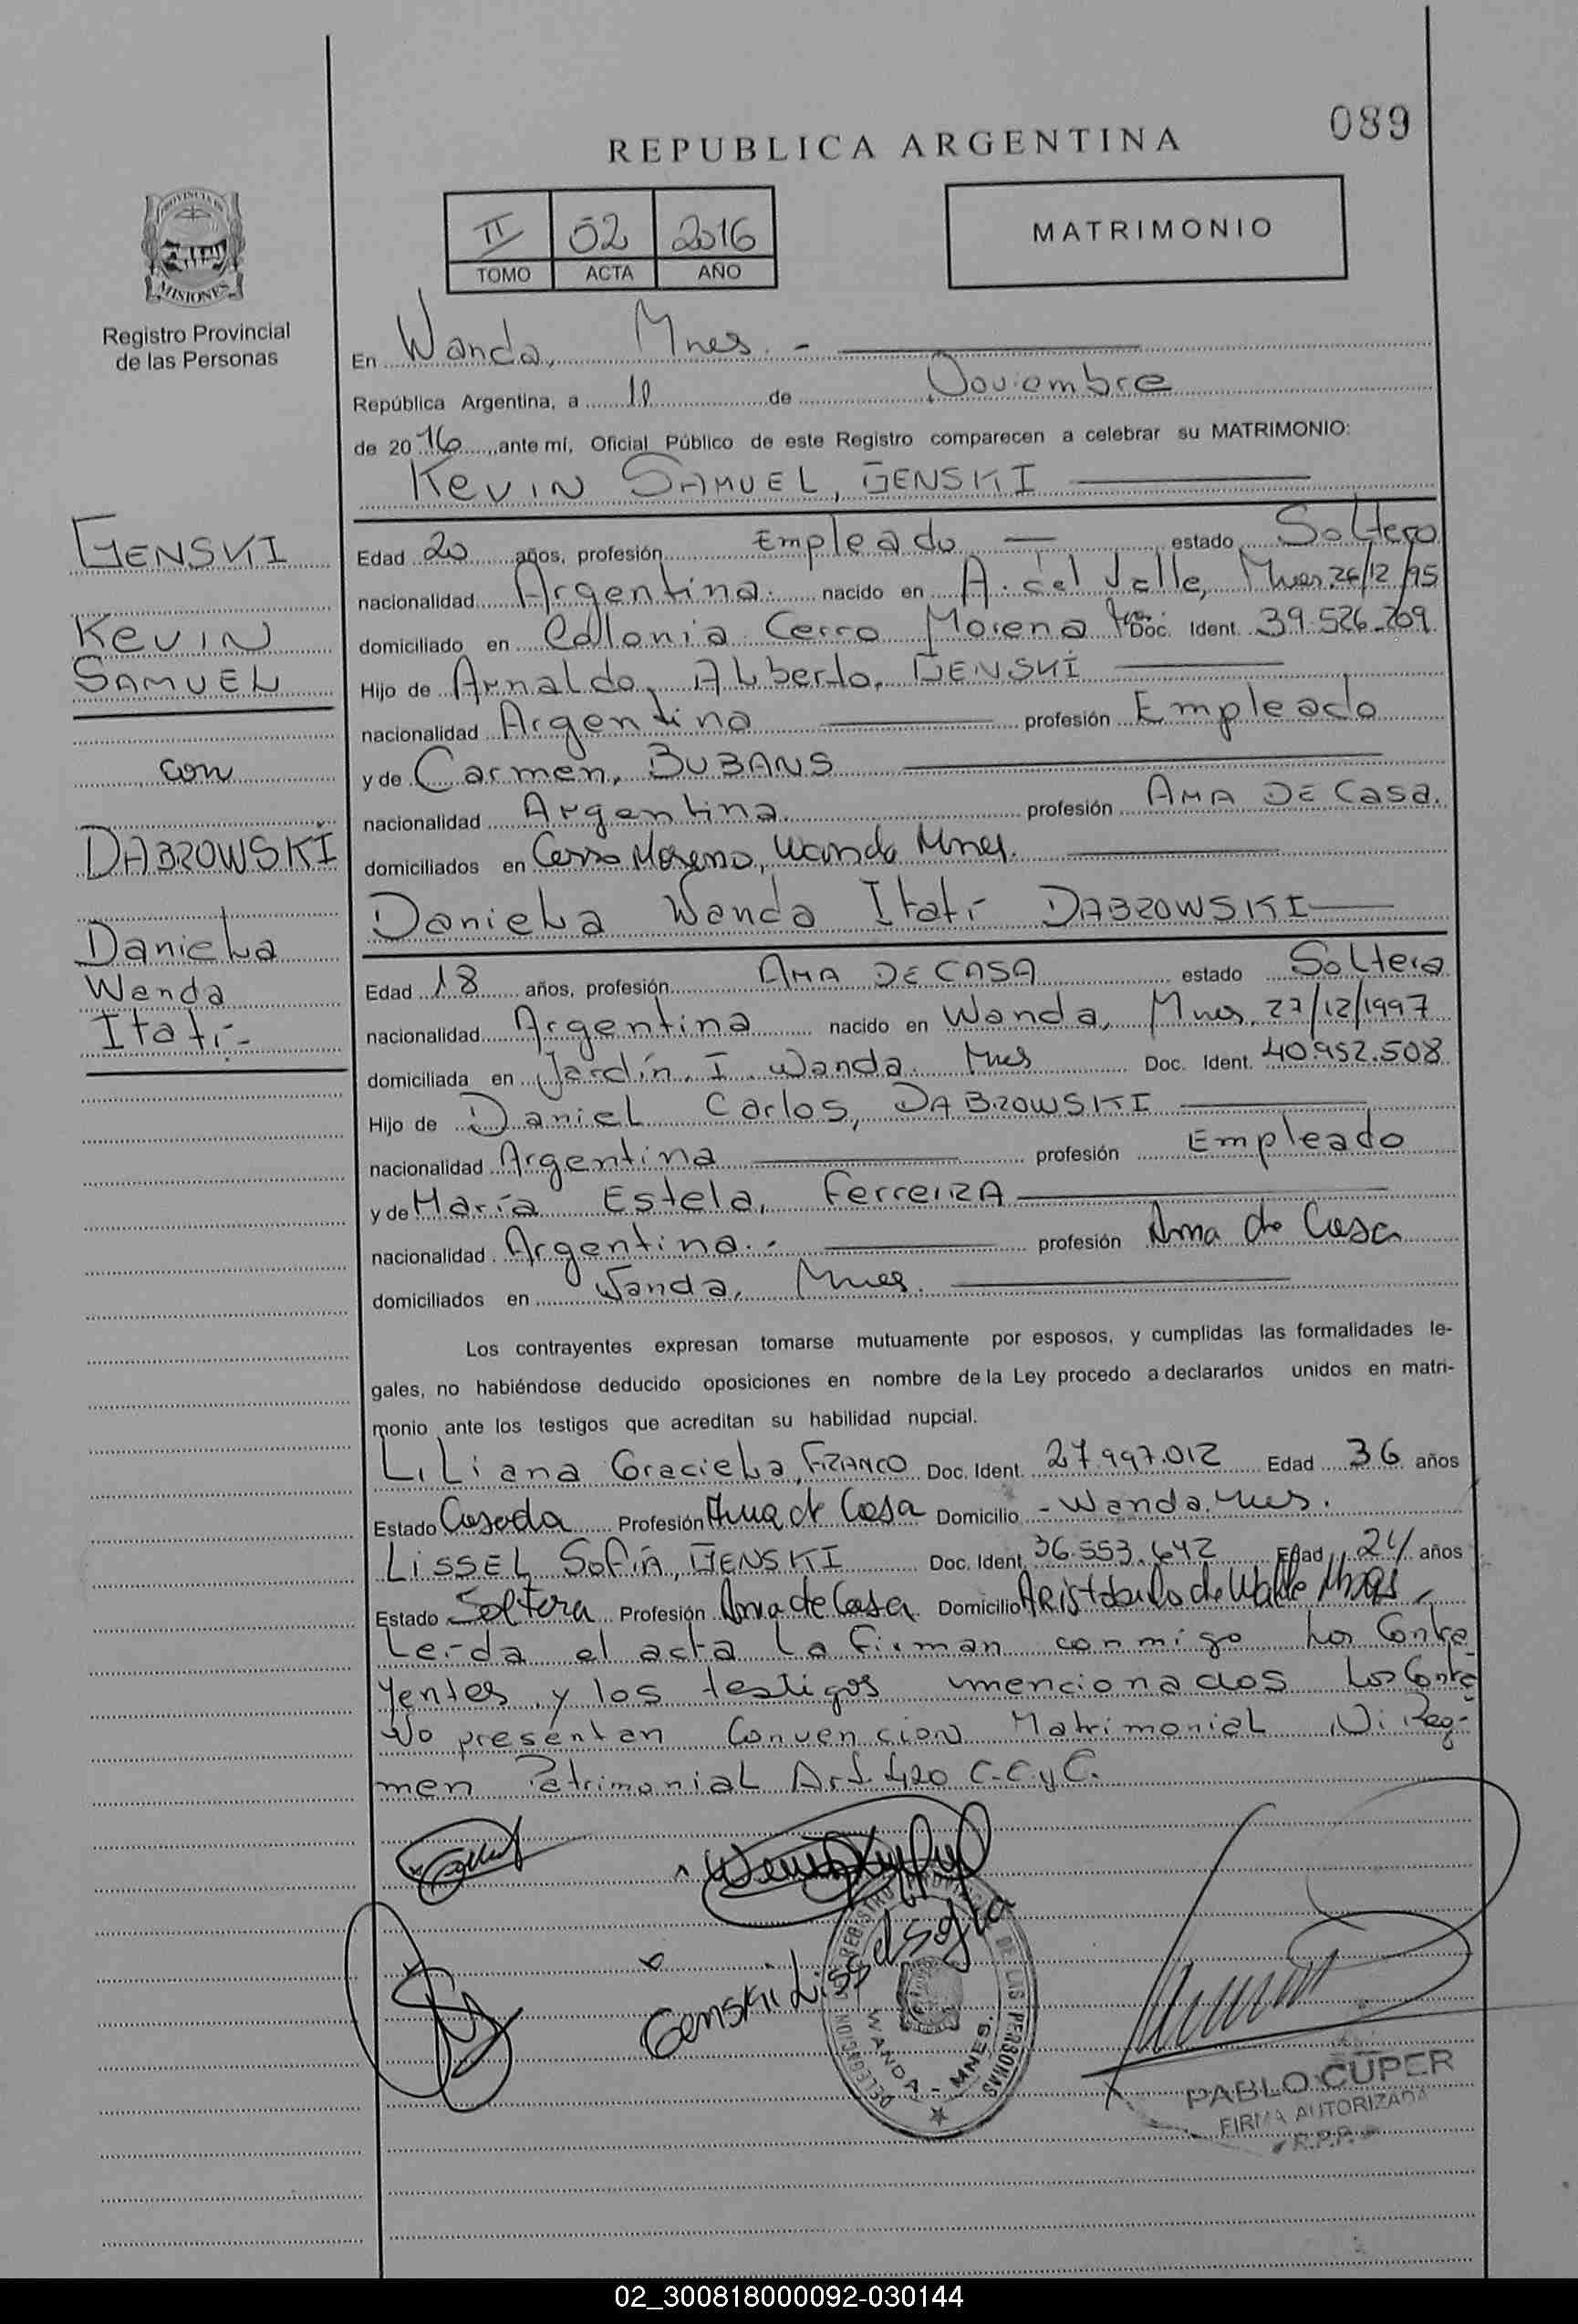 089
REPUBLICA ARGENTINA
II 02 2016
TOMO ACTA AÑO
MATRIMONIO
PROVINCIA DE
MISIONES
Registro Provincial
de las Personas
En Wanda, Mnes. -
República Argentina, a de Noviembre
de 2016 ante mí, Oficial Público de este Registro comparecen a celebrar su MATRIMONIO:
KEVIN SAMUEL, GENSKI
GENSKI
KEVIN
SAMUEL
con
DABROWSKI
Daniela
Wanda
Itatí-
Edad 20 años, profesión Empleado — estado Soltero
nacionalidad Argentina. nacido en A. del Valle, Mnes. 26/12/95
domiciliado en Colonia Cerro Morena Doc. Ident. 39.526.209
Hijo de Arnaldo, Alberto, GENSKI
nacionalidad Argentina profesión Empleado
y de Carmen, BUBANS
nacionalidad Argentina. profesión AMA DE Casa.
domiciliados en Cerro Moreno, Wanda Mnes.
Daniela Wanda Itatí DABROWSKI
Edad 18 años, profesión AMA DE CASA estado Soltera
nacionalidad Argentina nacido en Wanda, Mnes. 27/12/1997
domiciliada en Jardín I Wanda. Mnes Doc. Ident. 40.952.508
Hijo de Daniel Carlos, DABROWSKI
nacionalidad Argentina profesión Empleado
y de María Estela, FerreirA
nacionalidad Argentina.- profesión Ama de Casa
domiciliados en Wanda, Mnes.
Los contrayentes expresan tomarse mutuamente por esposos, y cumplidas las formalidades le-
gales, no habiéndose deducido oposiciones en nombre de la Ley procedo a declararlos unidos en matri-
monio ante los testigos que acreditan su habilidad nupcial.
Liliana Graciela, FRANCO Doc. Ident. 27.997.012 Edad 36 años
Estado Casada Profesión Ama de Casa Domicilio - Wanda. Mnes.
LISSEL SOFIA, GENSKI Doc. Ident. 36.553.642 Edad 24 años
Estado Soltera Profesión Ama de Casa Domicilio Aristobulo de Valle Mnes -
Leída el acta la firman conmigo los Contra
yentes y los testigos mencionados los Contr
No presentan Convencion Matrimonial Ni Reg-
men Patrimonial Art. 420 C.C.y C.
Genski Lissel Sofia
DELEGACION REGISTRO PROVINCIAL DE LAS PERSONAS
WANDA - MNES.
PABLO CÜPER
FIRMA AUTORIZADA
R.P.P.
02_300818000092-030144